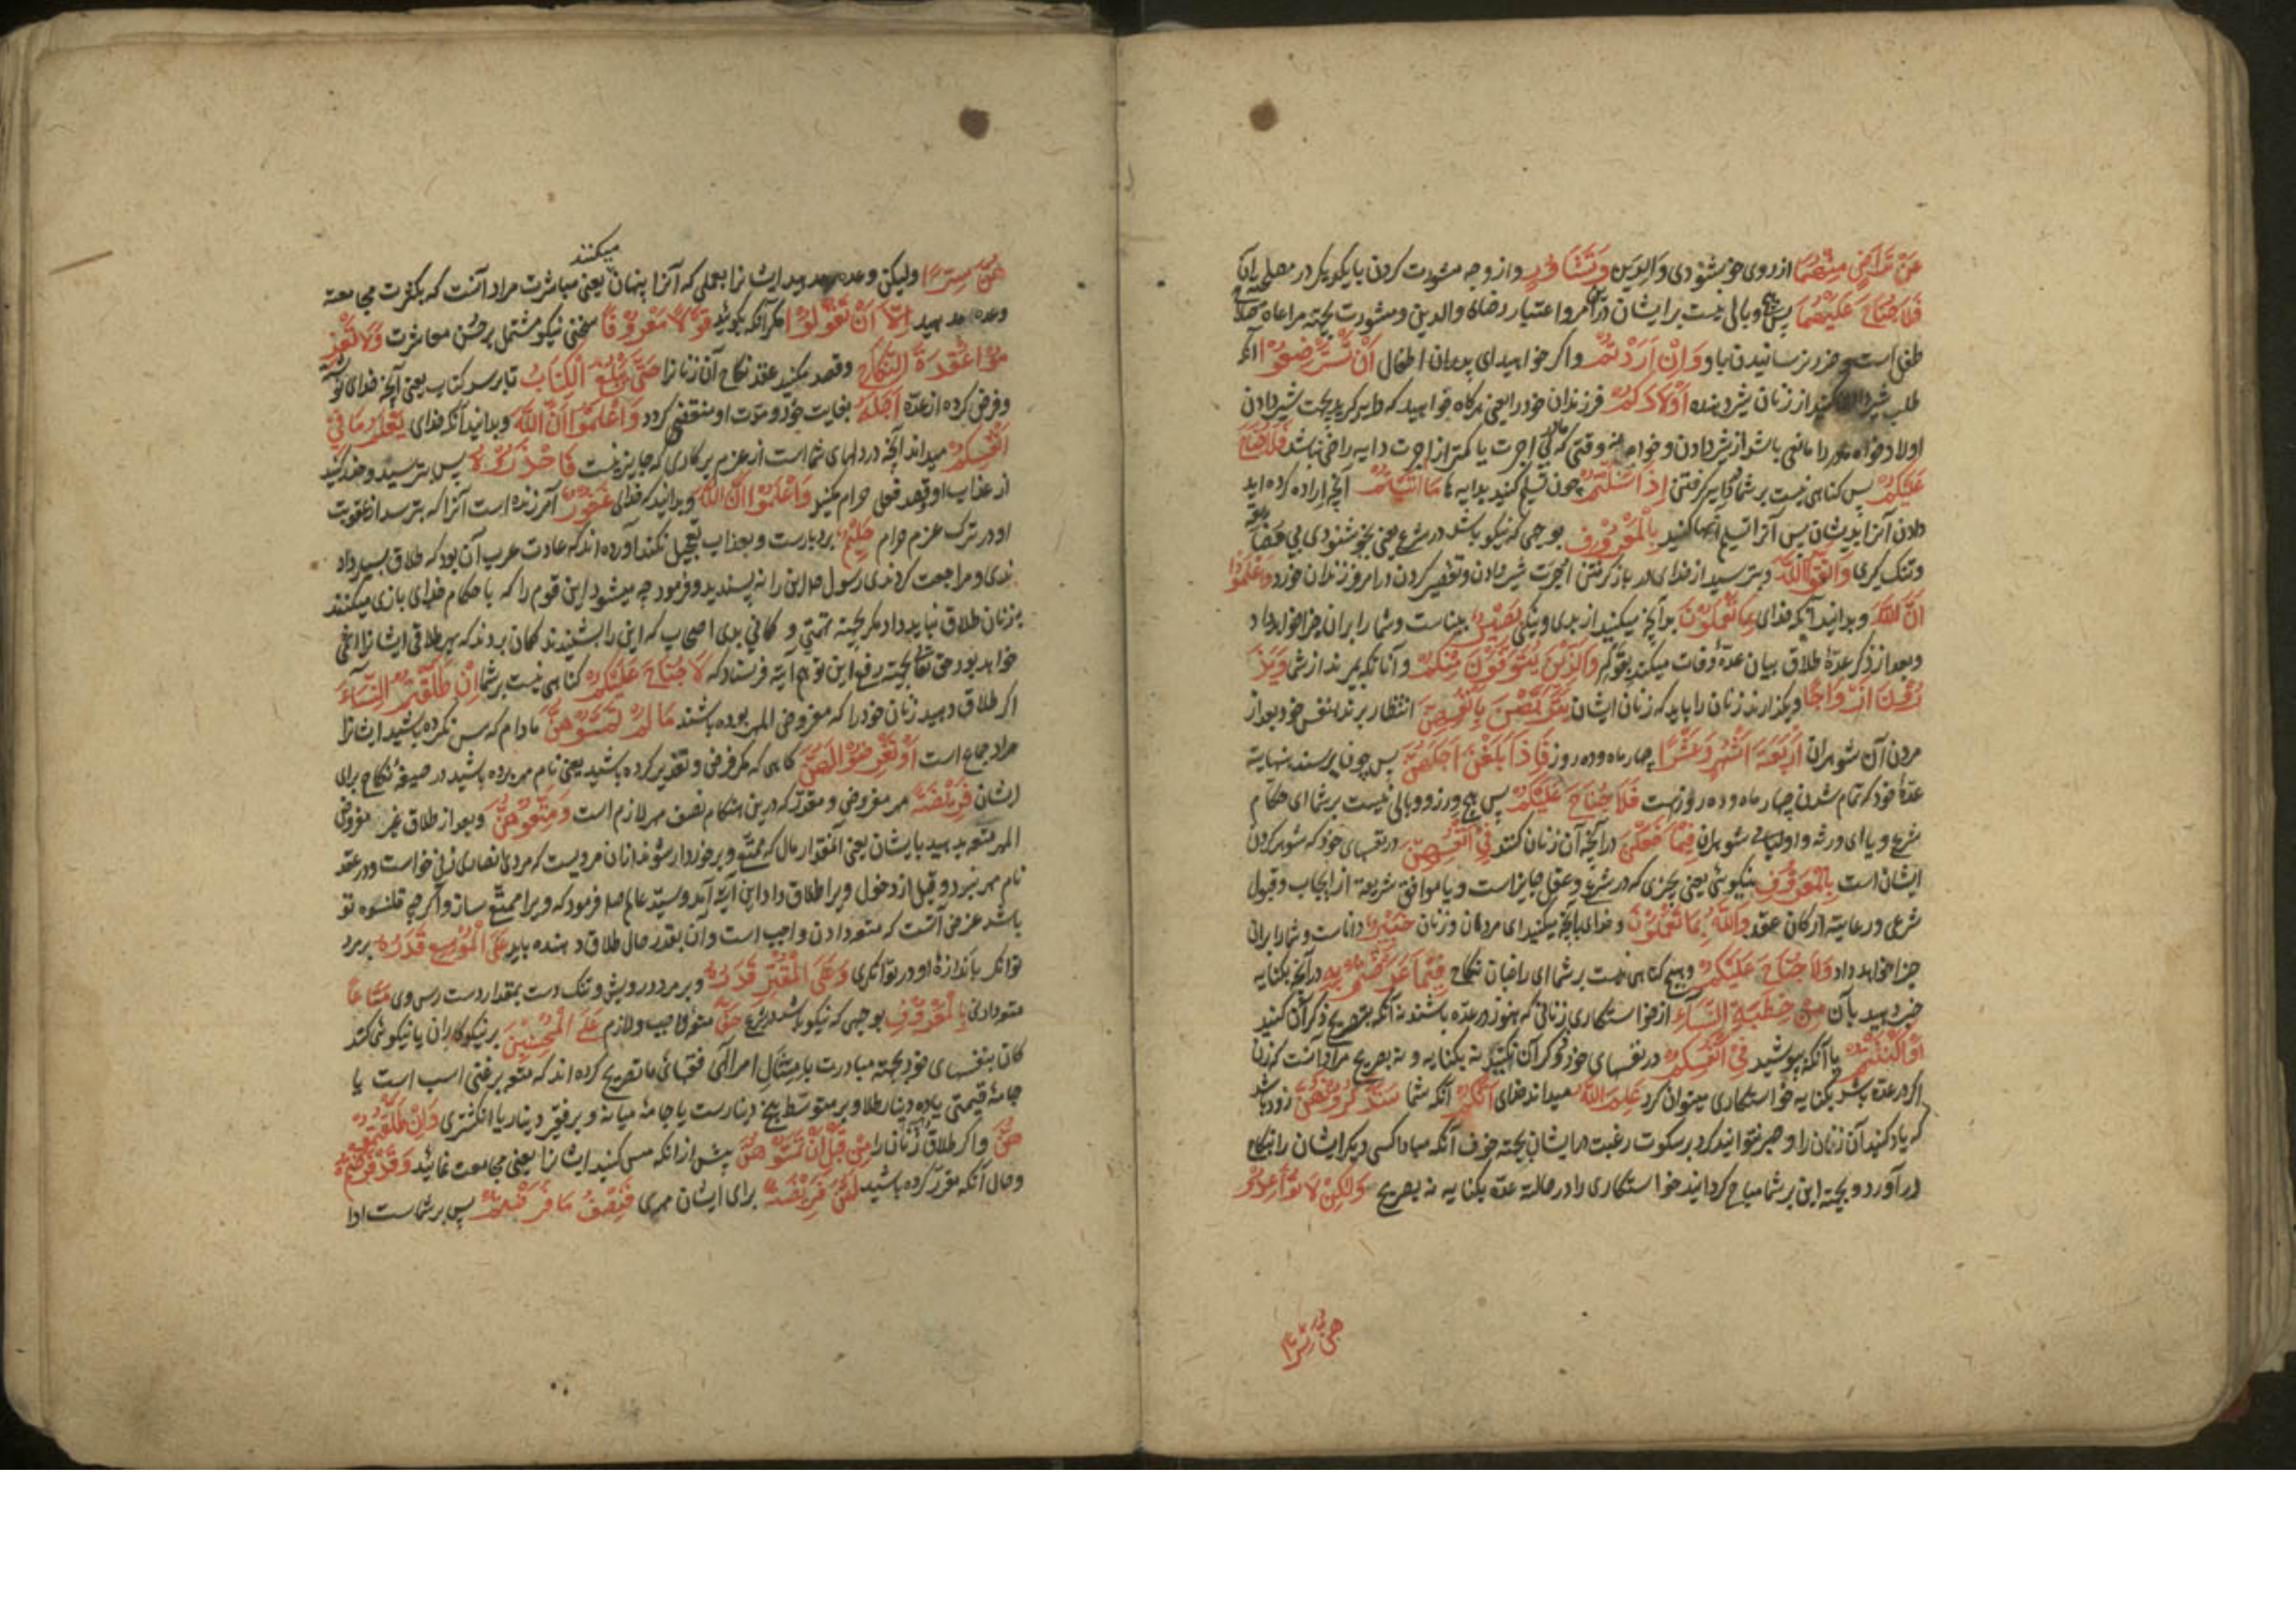 عَنْ تَرَاضٍ مِنْهُمَا از روی خوشنودی والدین وَتَشَاوُرٍ و از وجه مشورت کردن با یکدیگر در مصلحة آن
فَلَا جُنَاحَ عَلَيْهِمَا پس هیچ وبالی نیست بر ایشان در آن امر و اعتبار رضای والدین و مشورت بجهة مراعاة صلاح
طفل است و ضرر نرسانیدن باو وَاِنْ اَرَدْتُمْ و اگر خواهید ای پدران اطفال اَنْ تَسْتَرْضِعُوْا آنکه
طلب شیر کنید از زنان شیر دهنده اَوْلَادَكُمْ فرزندان خود را یعنی هرگاه خواهید که دایه گیرید بجهت شیر دادن
اولاد خواه مادر را مانعی باشد از شیر دادن و خواه نه وقتی که مادر بی اجرت یا کمتر از اجرت دایه راضی نباشد فَلَا جُنَاحَ
عَلَيْكُمْ پس گناهی نیست بر شما در دایه گرفتن اِذَا سَلَّمْتُمْ چون تسلیم کنید بدایه ها مَا اٰتَيْتُمْ آنچه اراده کرده اید
دادن آنرا بدیشان پس آنرا تسلیم آنها کنید بِالْمَعْرُوْفِ بوجهی که نیکو باشد در شرع یعنی بخوشنودی بی
و تنک گیری وَاتَّقُوا اللّٰهَ و بترسید از خدای در باز گرفتن اجرت شیر دادن و تقصیر کردن در امر فرزندان خورد وَاعْلَمُوْا
اَنَّ اللّٰهَ و بدانید آنکه خدای بِمَا تَعْمَلُوْنَ بر آنچه میکنید از بدی و نیکی بَصِيْرٌ بیناست و شما را بر آن جزا خواهد داد
و بعد از ذکر عدّهٔ طلاق بیان عدّهٔ وفات میکند بقوله وَالَّذِيْنَ يُتَوَفَّوْنَ مِنْكُمْ و آنانکه بمیرند از شما وَيَذَ
رُوْنَ اَزْوَاجًا و بگذارند زنان را باید که زنان ایشان يَتَرَبَّصْنَ بِاَنْفُسِهِنَّ انتظار برند بنفس خود بعد از
مردن آن شوهران اَرْبَعَةَ اَشْهُرٍ وَعَشْرًا چهار ماه و ده روز فَاِذَا بَلَغْنَ اَجَلَهُنَّ پس چون برسند بنهایة
عدّهٔ خود که تمام شدن چهار ماه و ده روز است فَلَا جُنَاحَ عَلَيْكُمْ پس هیچ وزر و وبالی نیست بر شما ای حکام
شرع و یا ای ورثه و اولیای شوهران فِيْمَا فَعَلْنَ در آنچه آن زنان کنند فِيْ اَنْفُسِهِنَّ در نفسهای خود که شوهر کردن
ایشان است بِالْمَعْرُوْفِ بنیکوئی یعنی بچیزی که در شرع و عقل جایز است و یا موافق شریعة از ایجاب و قبول
شرعی و رعایة ارکان عقد وَاللّٰهُ بِمَا تَعْمَلُوْنَ و خدای بآنچه میکنید ای مردان و زنان خَبِيْرٌ داناست و شما را بر آن
جزا خواهد داد وَلَا جُنَاحَ عَلَيْكُمْ و هیچ گناهی نیست بر شما ای راغبان نکاح فِيْمَا عَرَّضْتُمْ بِهِ در آنچه بکنایه
خبر دهید بآن مِنْ خِطْبَةِ النِّسَآءِ از خواستکاری زنانی که هنوز در عدّه باشند نه آنکه بتصریح ذکر آن کنید
اَوْ اَكْنَنْتُمْ یا آنکه بپوشید فِيْ اَنْفُسِكُمْ در نفسهای خود و ذکر آن نکنید نه بکنایه و نه بصریح مراد آنست که زن
اگر در عدّه باشد بکنایه خواستکاری میتوان کرد عَلِمَ اللّٰهُ میداند خدای اَنَّكُمْ آنکه شما سَتَذْكُرُوْنَهُنَّ زود باشد
که یاد کنید آن زنان را و صبر نتوانید کرد بر سکوت رغبت در ایشان بجهة خوف آنکه مبادا کسی دیگر ایشان را بنکاح
در آورد و بجهة این بر شما مباح گردانید خواستکاری را در حالة عدّه بکنایه نه بصریح وَلٰكِنْ لَا تُوَاعِدُوْ
هُنَّ سِرًّا ولیکن وعده مدهید ایشانرا بعملی که آنرا پنهان میکنند یعنی مباشرت مراد آنست که بکثرت مجامعة
وعده مدهید اِلَّا اَنْ تَقُوْلُوْا مگر آنکه بگوئید قَوْلًا مَعْرُوْفًا سخنی نیکو مشتمل بر حسن معاشرت وَلَا تَعْزِ
مُوْا عُقْدَةَ النِّكَاحِ و قصد مکنید عقد نکاح آن زنانرا حَتّٰى يَبْلُغَ الْكِتَابُ تا برسد کتاب یعنی آنچه خدای نوشته
و فرض کرده از عدّه اَجَلَهُ بغایت خود و مدت او منقضی گردد وَاعْلَمُوْا اَنَّ اللّٰهَ و بدانید آنکه خدای يَعْلَمُ مَا فِيْ
اَنْفُسِكُمْ میداند آنچه در دلهای شما است از عزم بر کاری که جایز نیست فَاحْذَرُوْهُ پس بترسید و حذر کنید
از عذاب او و قصد فعل حرام مکنید وَاعْلَمُوْا اَنَّ اللّٰهَ و بدانید که خدای غَفُوْرٌ آمرزنده است آنرا که بترسد از عقوبت
او در ترک عزم حرام حَلِيْمٌ بردبارست و بعذاب تعجیل نکند آورده اند که عادت عرب آن بود که طلاق بسیار داد
ندی و مراجعت کردندی رسول صلعم این را نه پسندید و فرمود چه میشود این قوم را که با حکام خدای بازی میکنند
زنان طلاق نباید داد مگر بجهة تهمتی و گمانی بدی اصحاب که این را بشنیدند گمان بردند که بهر طلاقی ایشانرا اثمی
خواهد بود حق تعالی بجهة رفع این توهم آیه فرستاد که لَا جُنَاحَ عَلَيْكُمْ گناهی نیست بر شما اِنْ طَلَّقْتُمُ النِّسَآءَ
اگر طلاق دهید زنان خود را که مفروض المهر بوده باشند مَا لَمْ تَمَسُّوْهُنَّ مادام که مس نکرده باشید ایشانرا
مراد جماع است اَوْ تَفْرِضُوْا لَهُنَّ گاهی که مگر فرض و تقدیر کرده باشید یعنی نام مهر برده باشید در صیغهٔ نکاح برای
ایشان فَرِيْضَةً مهر مفروض و مقدّر که درین هنگام نصف مهر لازم است وَمَتِّعُوْهُنَّ و بعد از طلاق غیر مفروض
المهر متعه بدهید بایشان یعنی آنمقدار مال که متمتع و برخوردار شوند از آن مرویست که مردی انصاری زنی خواست و در عقد
نام مهر نبرد و قبل از دخول ویرا طلاق داد این آیه آمد و سیّد عالم صلعم فرمود که ویرا متمتّع ساز و اگر چه قلنسوه تو
باشد غرض آنست که متعه دادن واجب است و آن بقدر حال طلاق دهنده باید عَلَى الْمُوْسِعِ قَدَرُهُ بر مرد
توانگر باندازهٔ او در توانگری وَعَلَى الْمُقْتِرِ قَدَرُهُ و بر مرد درویش و تنک دست بمقدار دست رس وی مَتَاعًا
متعه دادنی بِالْمَعْرُوْفِ بوجهی که نیکو باشد در شرع حَقًّا متعهٔ واجب و لازم عَلَى الْمُحْسِنِيْنَ بر نیکوکاران یا نیکوئی کنند
کان بنفسهای خود بجهة مبادرت بامتثال امر الهی فقهای ما تصریح کرده اند که متعه بر غنی اسب است یا
جامهٔ قیمتی یا ده دینار طلا و بر متوسّط پنج دینارست یا جامهٔ میانه و بر فقیر دینار یا انگشتری وَاِنْ طَلَّقْتُمُوْ
هُنَّ و اگر طلاق زنان را مِنْ قَبْلِ اَنْ تَمَسُّوْهُنَّ پیش از آنکه مس کنید ایشانرا یعنی مجامعت نمائید وَقَدْ فَرَضْتُمْ
و حال آنکه مقرّر کرده باشید لَهُنَّ فَرِيْضَةً برای ایشان مهری فَنِصْفُ مَا فَرَضْتُمْ پس بر شماست ادا